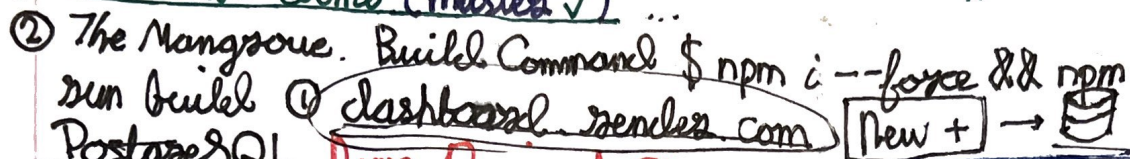 ② The Mangrove. Build Command $ npm i --force && npm
run build ① dashboard.render.com New + →
PostgreSQL